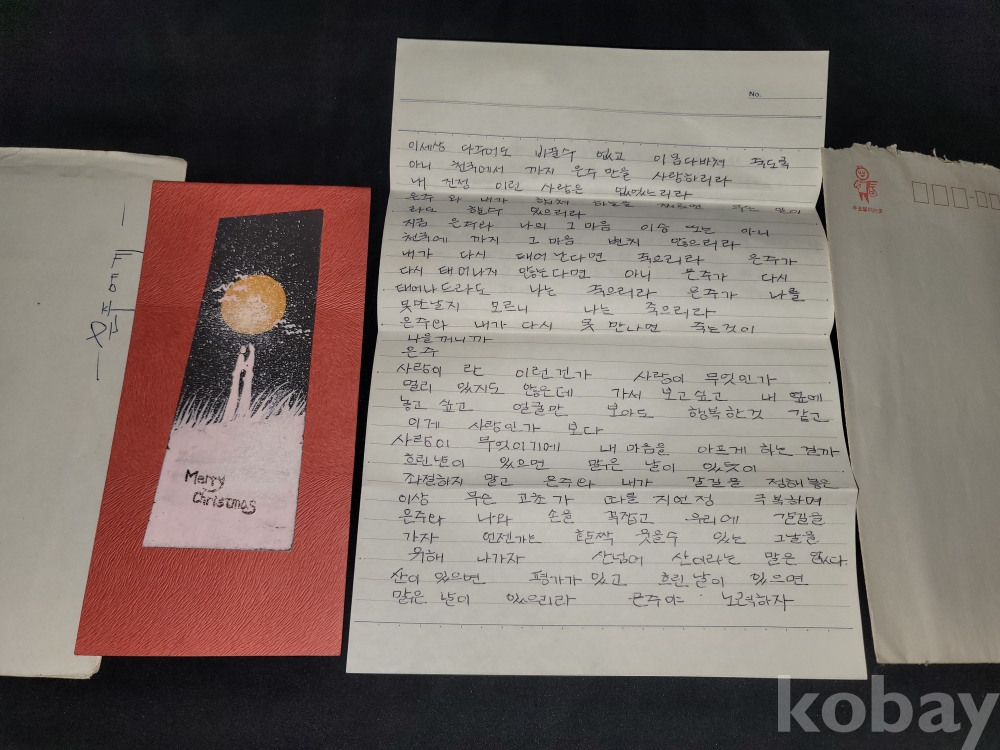 No.
이세상 다주어도 바꿀수 없고 이몸다바쳐 죽도록
아니 천국에서 까지 은주만을 사랑하리라
내 진정 이런 사랑은 없었느리라
은주 와 내가 합쳐
라도 할수 있으리라
지금 은주라 나의 그마음 이상 또는 아니
천국에 까지 그 마음 변치 않으리라
내가 다시 태어 난다면 죽으리라 은주가
다시 태어나지 않는다면 아니 은주가 다시
태어나드라도 나는 죽으리라 은주가 나를
못만날지 모르니 나는 죽으리라
은주와 내가 다시 못 만나면 죽는것이
나을꺼니까
은주
사랑이 란 이런건가 사랑이 무엇인가
멀리 있지도 않은데 가서 보고싶고 내 옆에
놓고 싶고 얼굴만 보아도 행복한것 같고
이게 사랑인가 보다
사랑이 무엇이기에 내 마음을 아프게 하는 걸까
흐린날이 있으면 맑은 날이 있듯이
좌절하지 말고 은주와 내가 갈길을 정해 놓은
이상 무슨 고초가 따를 지언정 극복하며
은주와 나와 손을 꼭잡고 우리에 갈길을
가자 언젠가는 활짝 웃을수 있는 그날을
위해 나가자 산넘어 산이라는 말은 없다
산이 있으면 평가가 있고 흐린날이 있으면
맑은 날이 있으리라 은주야 노력하자
Merry
Christmas
kobay